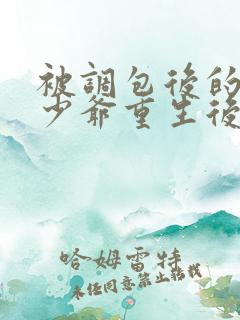 被調包後的
少爺重生後
哈姆雷特
未经同意禁止转载